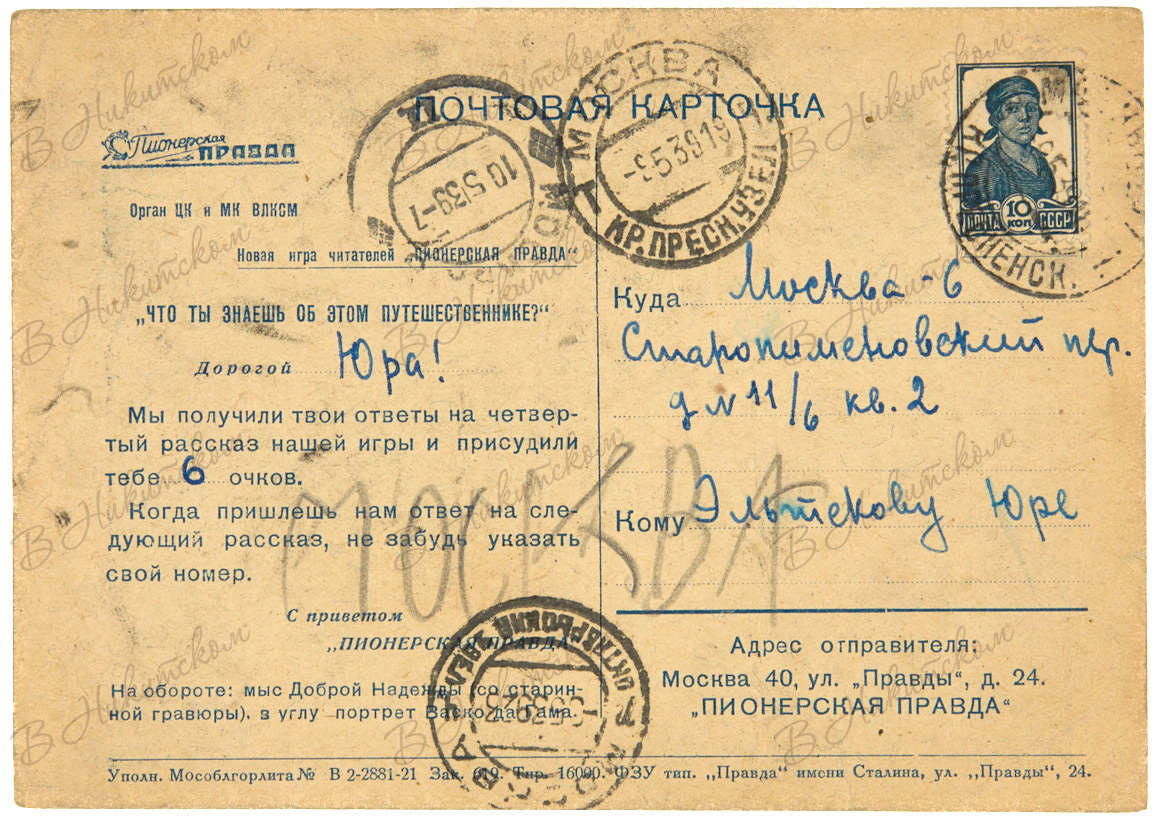 ПОЧТОВАЯ КАРТОЧКА
Пионерская
ПРАВДА
Орган ЦК и МК ВЛКСМ
Новая игра читателей „ПИОНЕРСКАЯ ПРАВДА"
„ЧТО ТЫ ЗНАЕШЬ ОБ ЭТОМ ПУТЕШЕСТВЕННИКЕ?"
Дорогой Юра!
Мы получили твои ответы на четвер-
тый рассказ нашей игры и присудили
тебе 6 очков.
Когда пришлешь нам ответ на сле-
дующий рассказ, не забудь указать
свой номер.
С приветом
„ПИОНЕРСКАЯ ПРАВДА"
На обороте: мыс Доброй Надежды (со старин-
ной гравюры), в углу портрет Васко да Гама.
МОСКВА
10 5 39 -7
МОСКВА
-9 5 39 19
КР. ПРЕСН. УЗЕЛ
ПОЧТА 10 КОП СССР
Куда Москва-6
Старопименовский пер.
д N 11/6 кв. 2
Кому Эльтекову Юре
Адрес отправителя:
Москва 40, ул. „Правды", д. 24.
„ПИОНЕРСКАЯ ПРАВДА"
МОСКВА
ОКТЯБРЬСКИЙ
Уполн. Мособлгорлита № В 2-2881-21 Зак. 619. Тир. 16000. ФЗУ тип. „Правда" имени Сталина, ул. „Правды", 24.
В Никитском